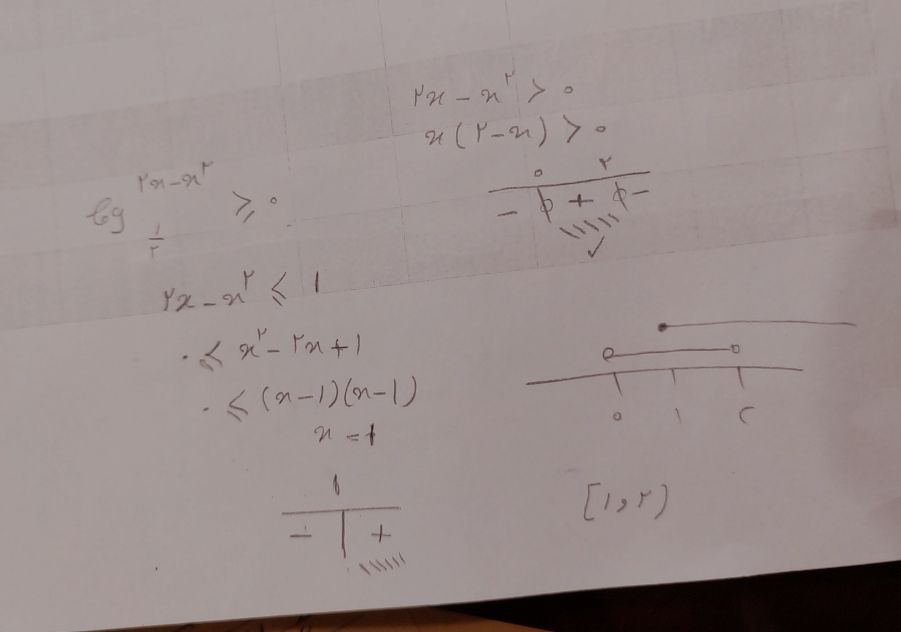 ۲x − x^۲ > ۰
x(۲ − x) > ۰
۰ ۲
− ϕ + ϕ −
✓
log_{۱/۲}^{۲x − x^۲} ⩾ ۰
۲x − x^۲ ⩽ ۱
۰ ⩽ x^۲ − ۲x + ۱
۰ ⩽ (x − ۱)(x − ۱)
x = ۱
۱
− | +
۰ ۱ ۲
[۱, ۲)